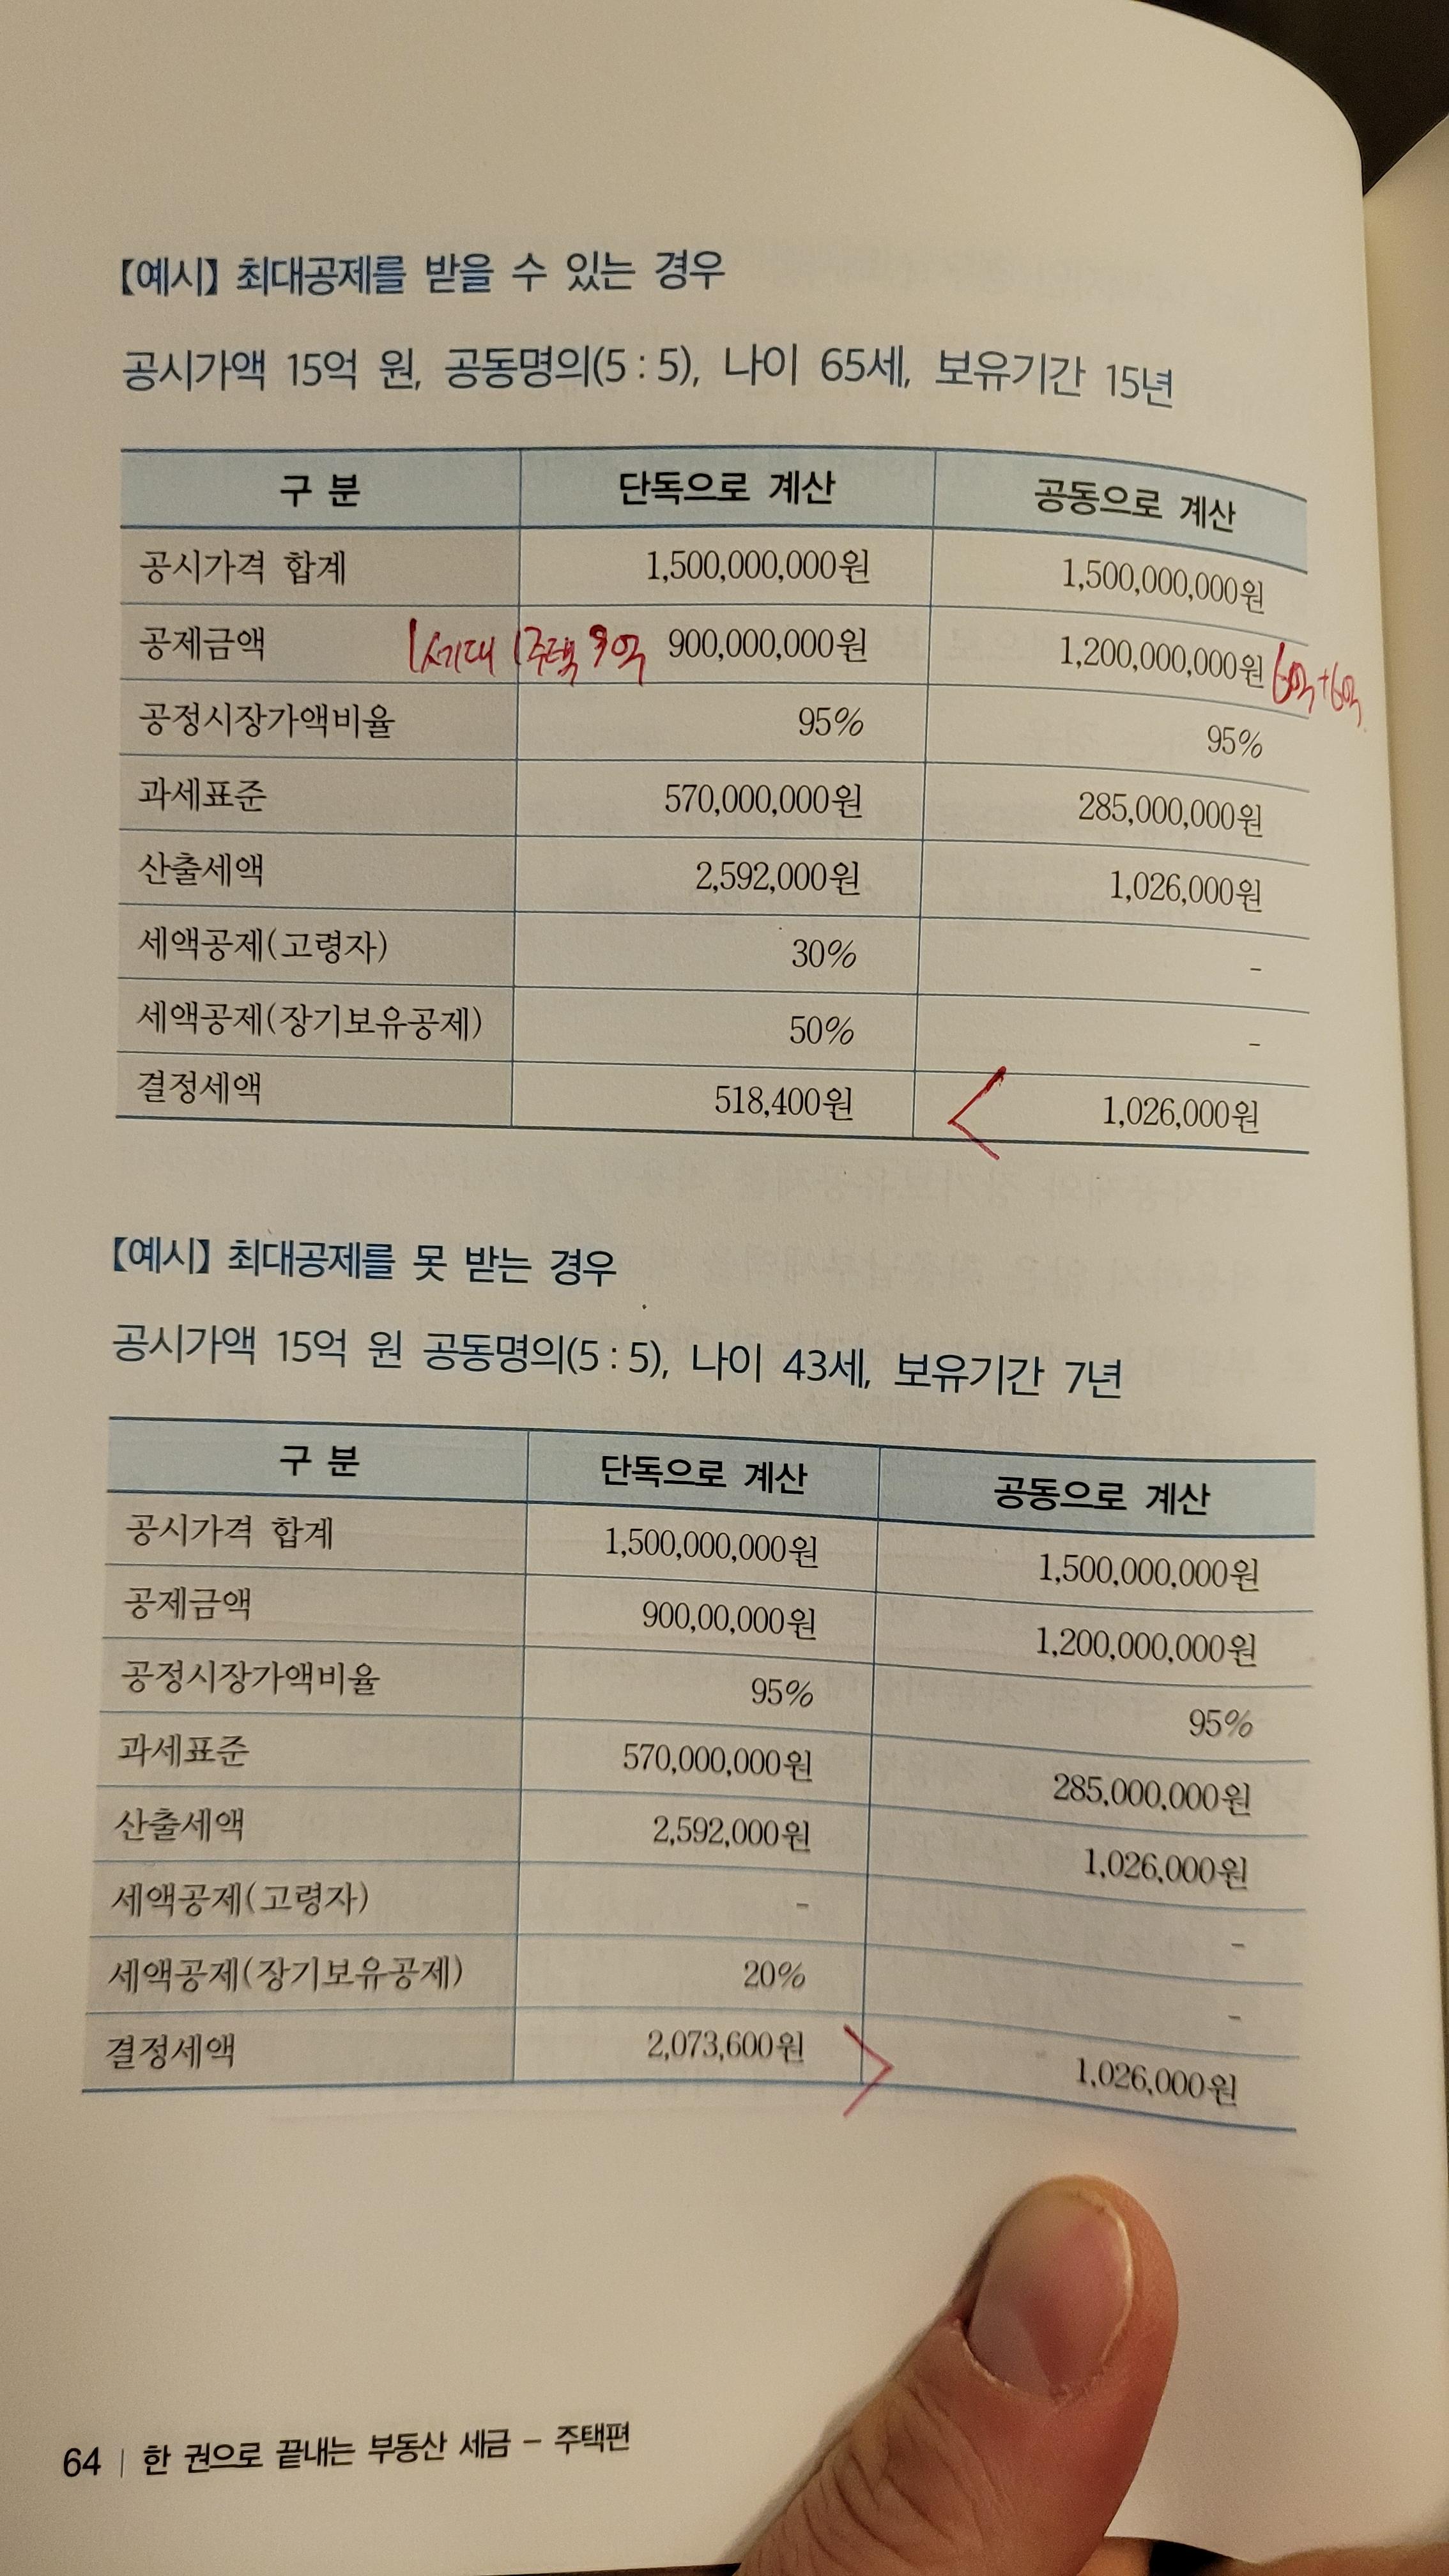 【예시】 최대공제를 받을 수 있는 경우
공시가액 15억 원, 공동명의(5 : 5), 나이 65세, 보유기간 15년
구 분 단독으로 계산 공동으로 계산
공시가격 합계 1,500,000,000원 1,500,000,000원
공제금액 1세대 1주택 9억 900,000,000원 1,200,000,000원 6억+6억
공정시장가액비율 95% 95%
과세표준 570,000,000원 285,000,000원
산출세액 2,592,000원 1,026,000원
세액공제(고령자) 30% -
세액공제(장기보유공제) 50% -
결정세액 518,400원 < 1,026,000원
【예시】 최대공제를 못 받는 경우
공시가액 15억 원 공동명의(5 : 5), 나이 43세, 보유기간 7년
구 분 단독으로 계산 공동으로 계산
공시가격 합계 1,500,000,000원 1,500,000,000원
공제금액 900,00,000원 1,200,000,000원
공정시장가액비율 95% 95%
과세표준 570,000,000원 285,000,000원
산출세액 2,592,000원 1,026,000원
세액공제(고령자) - -
세액공제(장기보유공제) 20% -
결정세액 2,073,600원 > 1,026,000원
64 | 한 권으로 끝내는 부동산 세금 - 주택편